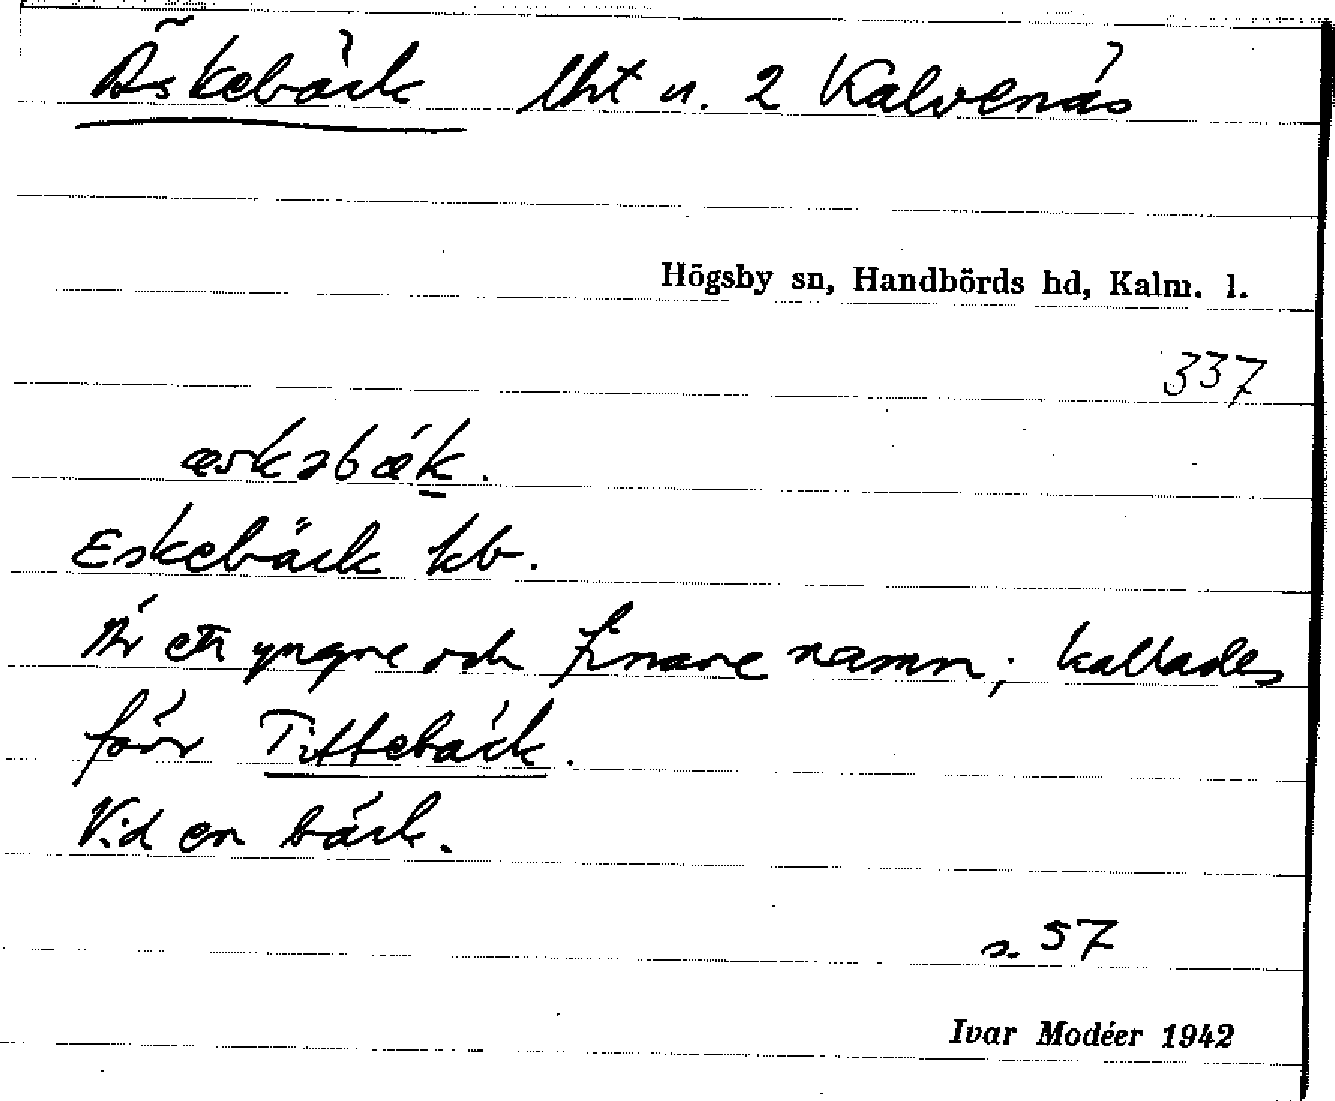 Äskebäck lht u. 2 Kalvenäs
Högsby sn, Handbörds hd, Kalm. l.
337
æskəbæk.
Eskebäck kb.
Är ett yngre och finare namn; kallades
förr Tittebäck.
Vid en bäck.
s. 57
Ivar Modéer 1942